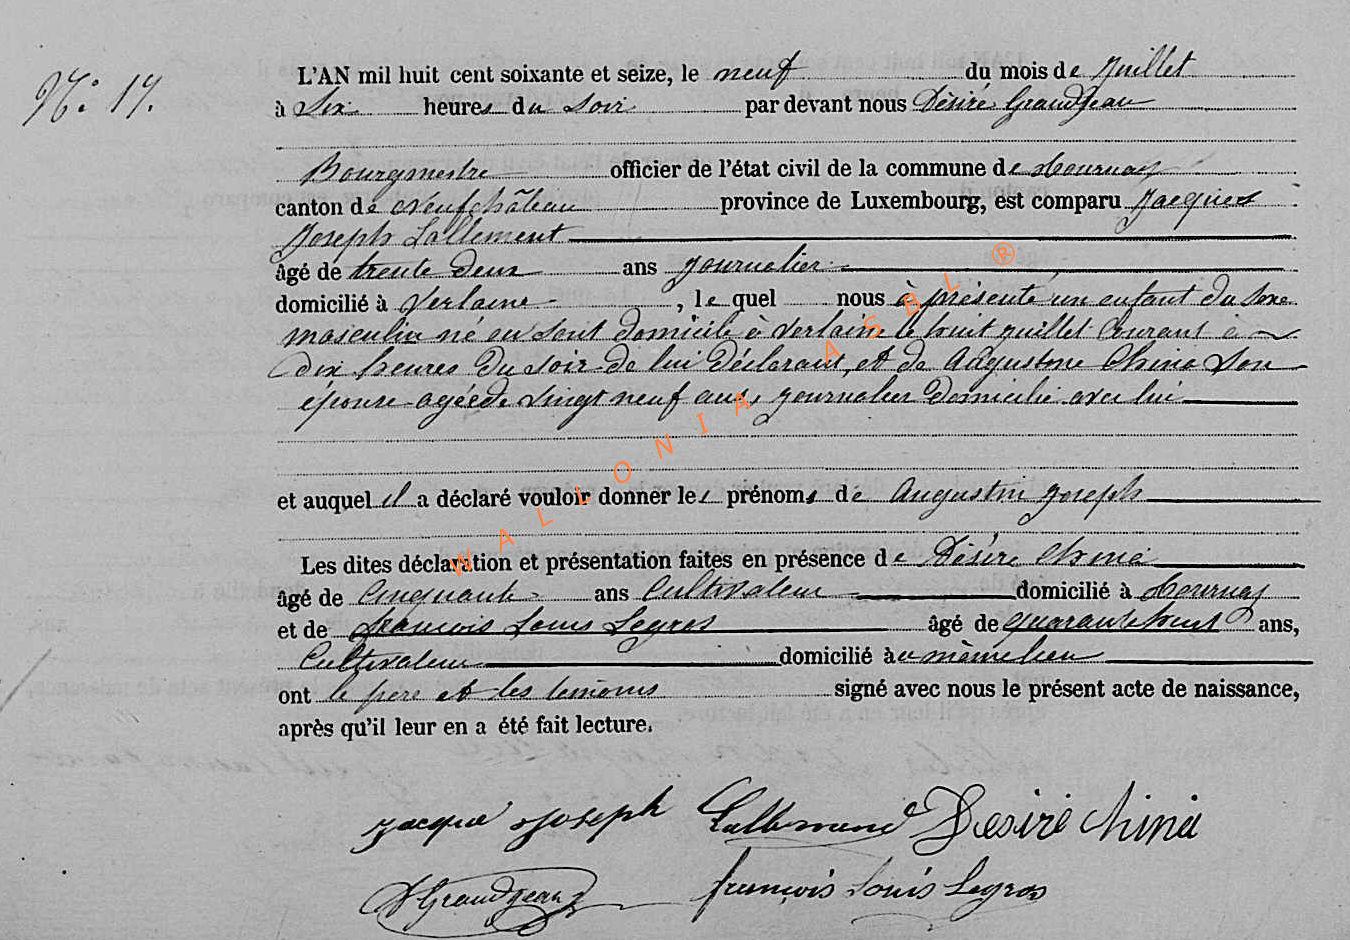 N.º 17.
L'AN mil huit cent soixante et seize, le neuf du mois de Juillet
à Six heures du soir par devant nous Désiré Grandjean
Bourgmestre officier de l'état civil de la commune de Tournay
canton de Neufchâteau province de Luxembourg, est comparu Jacques
Joseph Lallement
âgé de trente deux ans journalier
domicilié à Verlaine, le quel nous a présenté un enfant du sexe
masculin né en sont domicile à Verlaine le huit juillet courant à
dix heures du soir de lui Déclarant, et de Augustine Chine Son
épouse agée de vingt neuf ans, journalier Domicilié avec lui
et auquel il a déclaré vouloir donner les prénoms de Augustin Joseph
Les dites déclaration et présentation faites en présence de Désiré Chine
âgé de Cinquante ans Cultivateur domicilié à Tournay
et de François Louis Legros âgé de quarante huit ans,
Cultivateur domicilié au même lieu
ont le père et les témoins signé avec nous le présent acte de naissance,
après qu'il leur en a été fait lecture.
Jacque Joseph Lallemand Desiré Chine
D Grandjean françois Louis Legros
WALLONIA ASBL ®